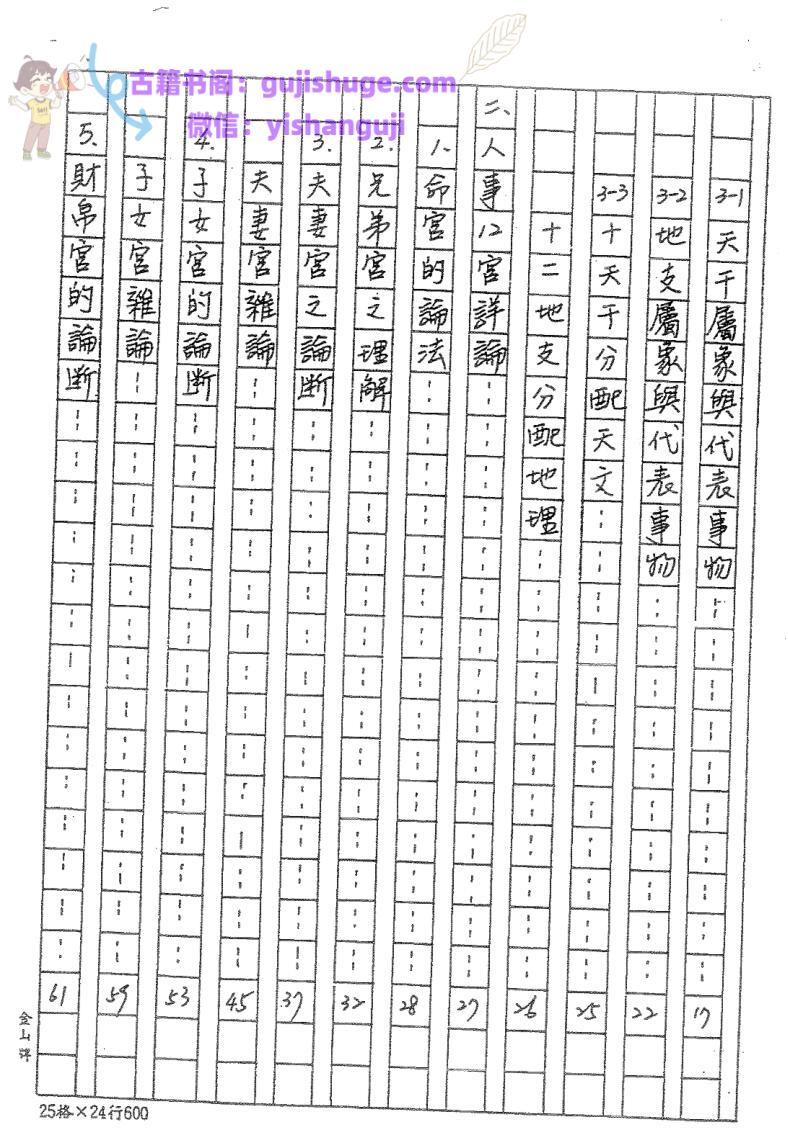 古籍书阁：gujishuge.com
微信：yishanguji
3-1 天干屬象與代表事物 17
3-2 地支屬象與代表事物 22
3-3 十天干分配天文 25
十二地支分配地理 26
二、人事12宮詳論 27
1、命宮的論法 28
2、兄弟宮之理解 32
3、夫妻宮之論斷 37
夫妻宮雜論 45
4、子女宮的論斷 53
子女宮雜論 59
5、財帛宮的論斷 61
金山牌
25格×24行600